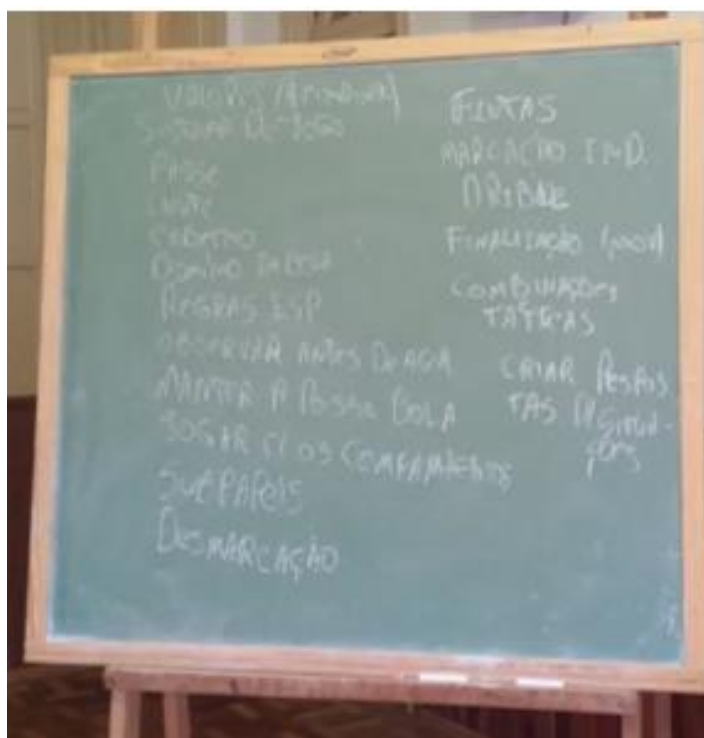 VALORES
SISTEMA DE JOGO
PASSE
CHUTE
REGRAS ESP
OBSERVAR ANTES DE AGIR
MANTER A POSSE BOLA
JOGAR C/ OS COMPANHEIROS
SUBPAPEIS
DESMARCAÇÃO
FINTAS
MARCAÇÃO IND.
DRIBLE
FINALIZAÇÃO
COMBINAÇÕES
TÁTICAS
CRIAR RESPOS
TAS P/ SITUA-
ÇÕES